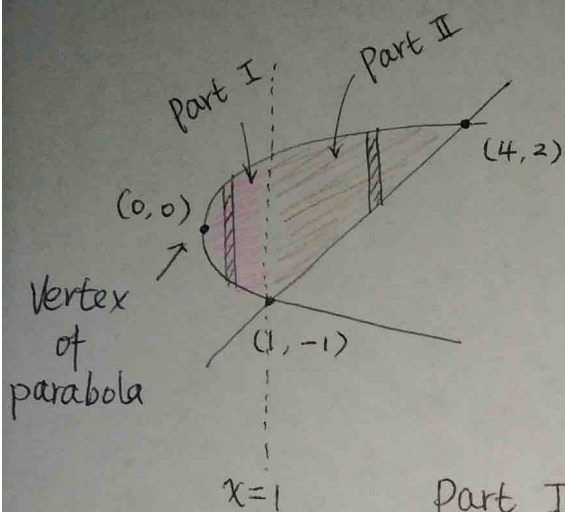 Part I
Part II
(4,2)
(0,0)
Vertex
of
parabola
(1,-1)
x=1
Part I